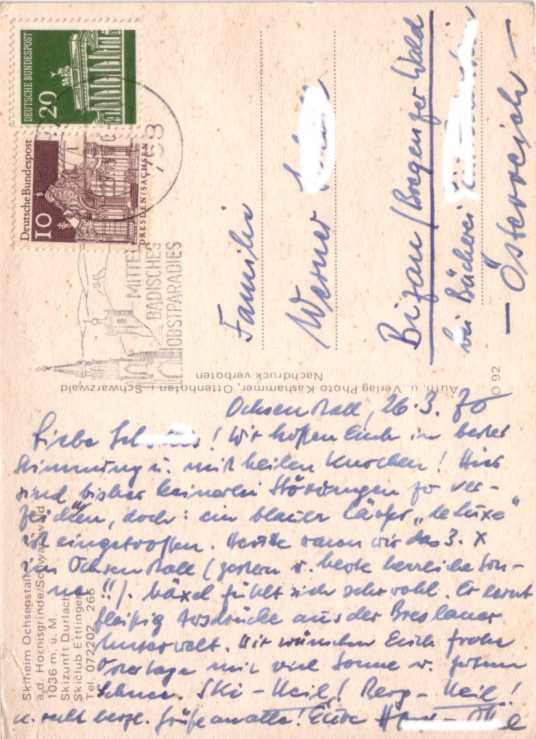 DEUTSCHE BUNDESPOST
20
Deutsche Bundespost
10
DRESDEN/SACHSEN
758
MITTEL
BADISCHES
OBSTPARADIES
Familie
Werner
Bizau/Bregenzer Wald
bei Bäckerei
– Österreich –
Aufn. u. Verlag Photo Kathammer, Ottenhöfen i. Schwarzwald
Nachdruck verboten
O 92
Skiheim Ochsenstall
a.d. Hornisgrinde/Schwarzwald
1036 m. ü. M.
Skizunft Durlach
Skiclub Ettlingen
Tel. 072202 266
Ochsenstall, 26.3.70
Liebe Sch! Wir hoffen Euch in bester
Stimmung u. mit heilen Knochen! Hier
sind bisher keinerlei Störungen zu ver-
zeichnen, doch: ein blauer "de luxe"
ist eingetroffen. Heute waren wir das 3. x
im Ochsenstall (gestern u. heute herrliche Son-
ne!!). fühlt sich sehr wohl. Er lernt
fleißig Ausdrücke aus der Breslauer
Unterwelt. Wir wünschen Euch frohe
Ostertage mit viel Sonne u. gutem
Schnee. Ski-Heil! Berg-Heil!
u. recht herzl. Grüße an alle! Eure